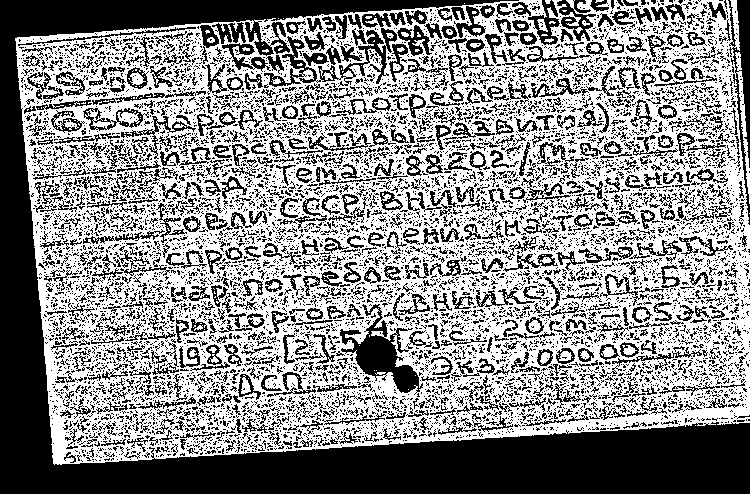 ВНИИ по изучению спроса населе
товары народного потребления и
конъюнктуры торговли
88-50к Конъюнктура рынка товаров
680 народного потребления (Пробл.
и перспективы развития): До-
клад. Тема N 882027/ М-во тор-
говли СССР, ВНИИ по изучению
спроса населения на товары
нар потребления и конъюнкту-
ры торговли (ВНИИКС). - М.: Б.и.,
1988. - [2], 54 [с] с., 20 см - 105 экз
ДСП Экз. N 000004